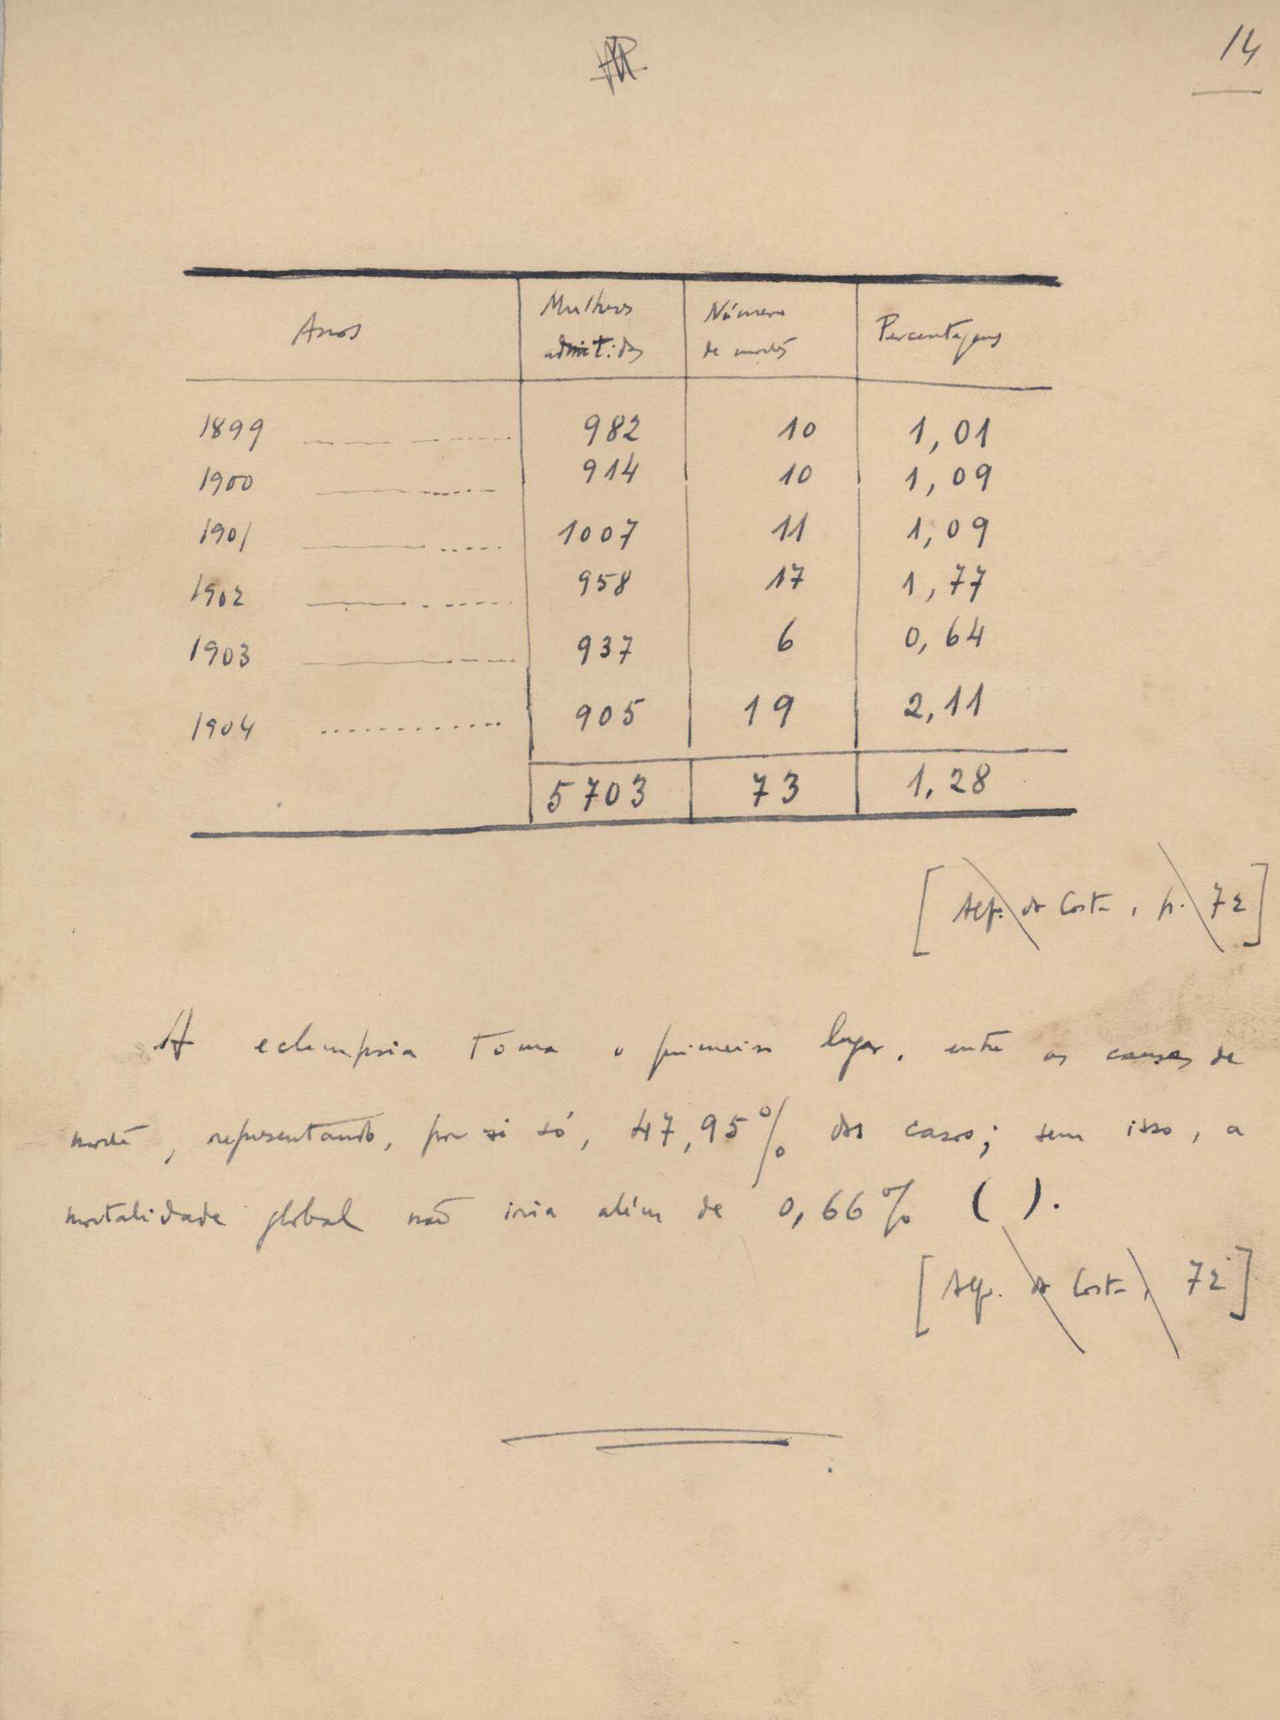 14
Anos Mulheres admitidas Número de mortes Percentagens
1899 ........ 982 10 1,01
1900 ........ 914 10 1,09
1901 ........ 1007 11 1,09
1902 ........ 958 17 1,77
1903 ........ 937 6 0,64
1904 ........ 905 19 2,11
5703 73 1,28
[Alf. da Costa, p. 72]
A eclampsia toma o primeiro lugar, entre as causas de
morte, representando, por si só, 47,95% dos casos; sem isso, a
mortalidade global não iria além de 0,66% ( ).
[Alf. da Costa, 72]